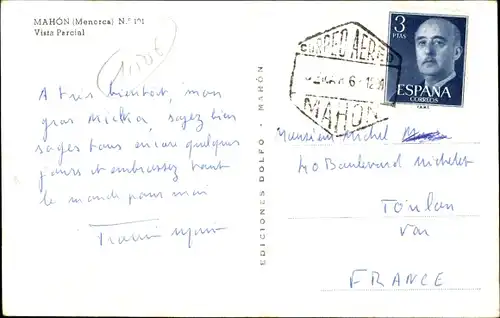 MAHÓN (Menorca) N.º 101
Vista Parcial
A très bientôt, mon
gros Micka, soyez bien
sages tous encore quelques
jours et embrassez tout
le monde pour moi
EDICIONES DOLFO - MAHÓN
CORREO AEREO
MAHON
3
PTAS
ESPAÑA
CORREOS
Monsieur Michel
40 Boulevard Michelet
Toulon
Var
FRANCE